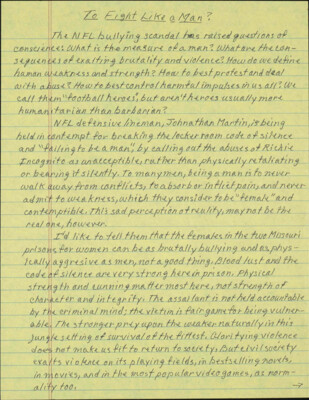 To Fight Like a Man?
The NFL bullying scandal has raised questions of
conscience. What is the measure of a man? What are the con-
sequences of exalting brutality and violence? How do we define
human weakness and strength? How to best protest and deal
with abuse? How to best control harmful impulses in us all? We
call them "football heroes", but aren't heroes usually more
humanitarian than barbarian?
NFL defensive lineman, Johnathan Martin, is being
held in contempt for breaking the locker room code of silence
and "failing to be a man", by calling out the abuses of Richie
Incognito as unacceptable, rather than physically retaliating
or bearing it silently. To many men, being a man is to never
walk away from conflicts, to absorb or inflict pain, and never
admit to weakness, which they consider to be "female" and
contemptible. This sad perception of reality, may not be the
real one, however.
I'd like to tell them that the females in the two Missouri
prisons for women can be as brutally bullying and as phys-
ically aggressive as men, not a good thing. Blood lust and the
code of silence are very strong here in prison. Physical
strength and cunning matter most here, not strength of
character and integrity. The assailant is not held accountable
by the criminal mind; the victim is fair game for being vulner-
able. The stronger prey upon the weaker naturally in this
jungle setting of survival of the fittest. Glorifying violence
does not make us fit to return to society. But civil society
exalts violence on its playing fields, in bestselling novels,
in movies, and in the most popular video games, as norm-
ality too. →